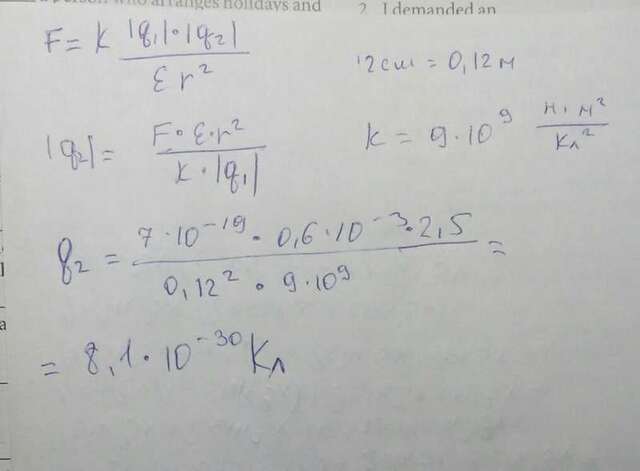 who arranges holidays and
2 I demanded an
F = K |q₁|·|q₂| / Ɛ r²
12 см = 0,12 м
|q₂| = F·Ɛ·r² / K·|q₁|
k = 9·10⁹ Н·м² / Кл²
q₂ = 7·10⁻¹⁹ · 0,6·10⁻³·2,5 / 0,12² · 9·10⁹ =
= 8,1·10⁻³⁰ Кл